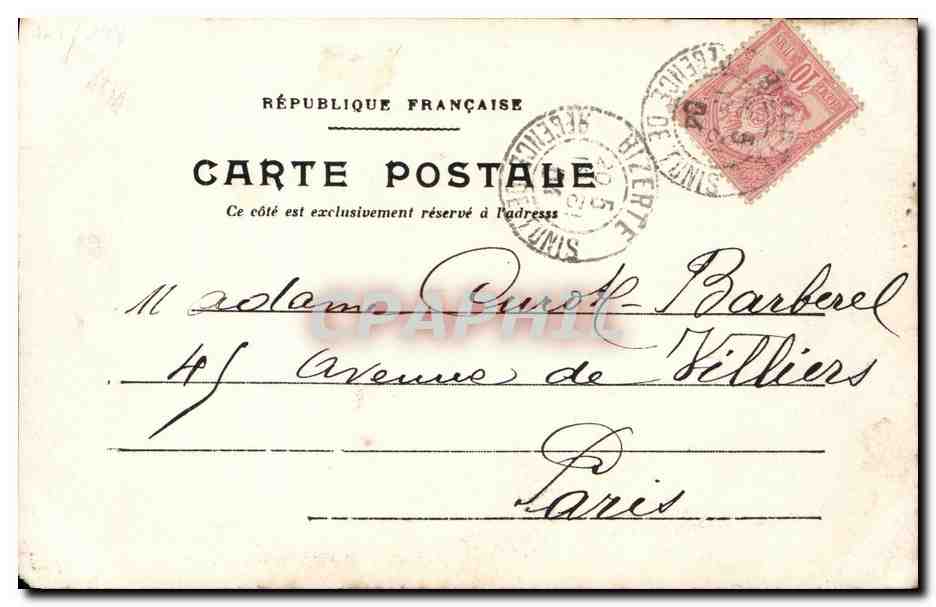 RÉPUBLIQUE FRANÇAISE
CARTE POSTALE
Ce côté est exclusivement réservé à l'adresse
BIZERTE
RÉGENCE DE TUNIS
RÉGENCE DE TUNIS
10
Madame Barberel
45 Avenue de Villiers
Paris
CPAPHIL